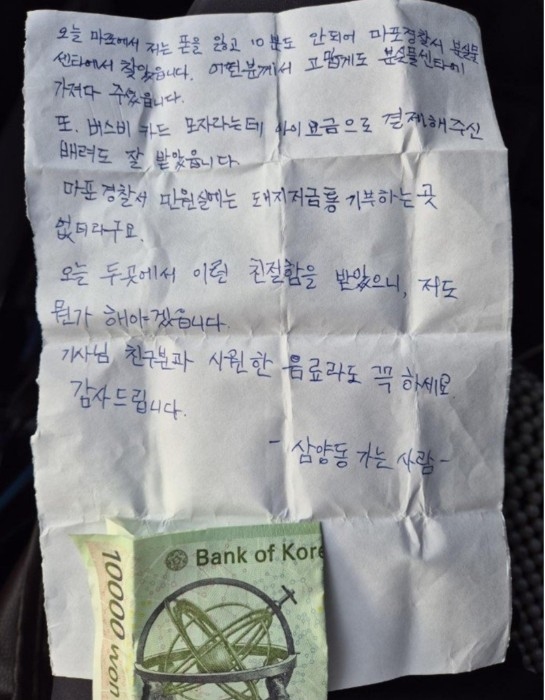 오늘 마포에서 저는 폰을 잃고 10분도 안되어 마포경찰서 분실물
센타에서 찾았습니다. 어떤분께서 고맙게도 분실물센타에
가져다 주셨습니다.
또. 버스비 카드 모자라는데 아이요금으로 결제해주신
배려도 잘 받았읍니다.
마포경찰서 민원실에는 돼지저금통 기부하는곳
없더라구요.
오늘 두곳에서 이런 친절함을 받았으니, 저도
뭔가 해야겠읍니다.
기사님 친구분과 시원한 음료라도 꼭 하세요
감사드립니다.
- 삼양동 가는 사람 -
Bank of Kore
10000 won